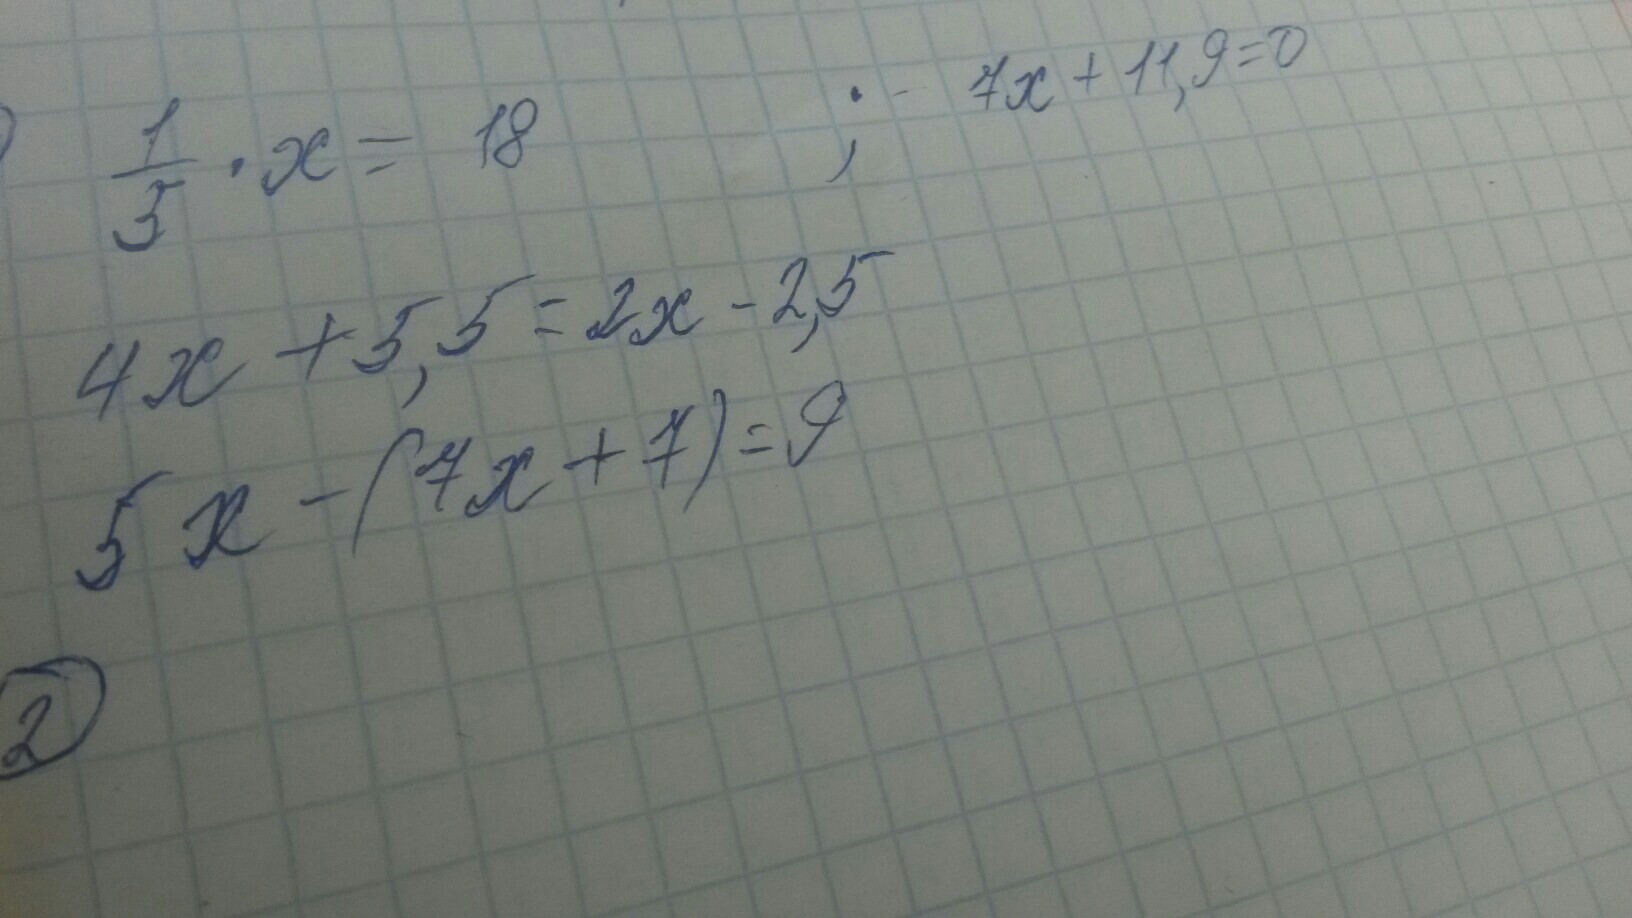 1/5 · x = 18 ; - 7x + 11,9 = 0
4x + 5,5 = 2x - 2,5
5x - (7x + 7) = 9
2